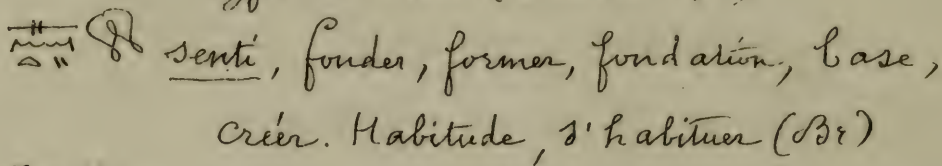 senti, fonder, former, fondation, base,
créer. Habitude, s'habituer (Br)